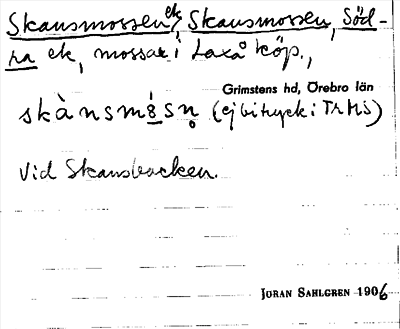 Skansmossen ek, Skansmossen, Söd-
ra ek, mossar i Laxå köp.,
Grimstens hd, Örebro län
skànsmɷ́sn̥ (ej bitryck i TrMS)
Vid Skansbacken.
JÖRAN SAHLGREN 1906